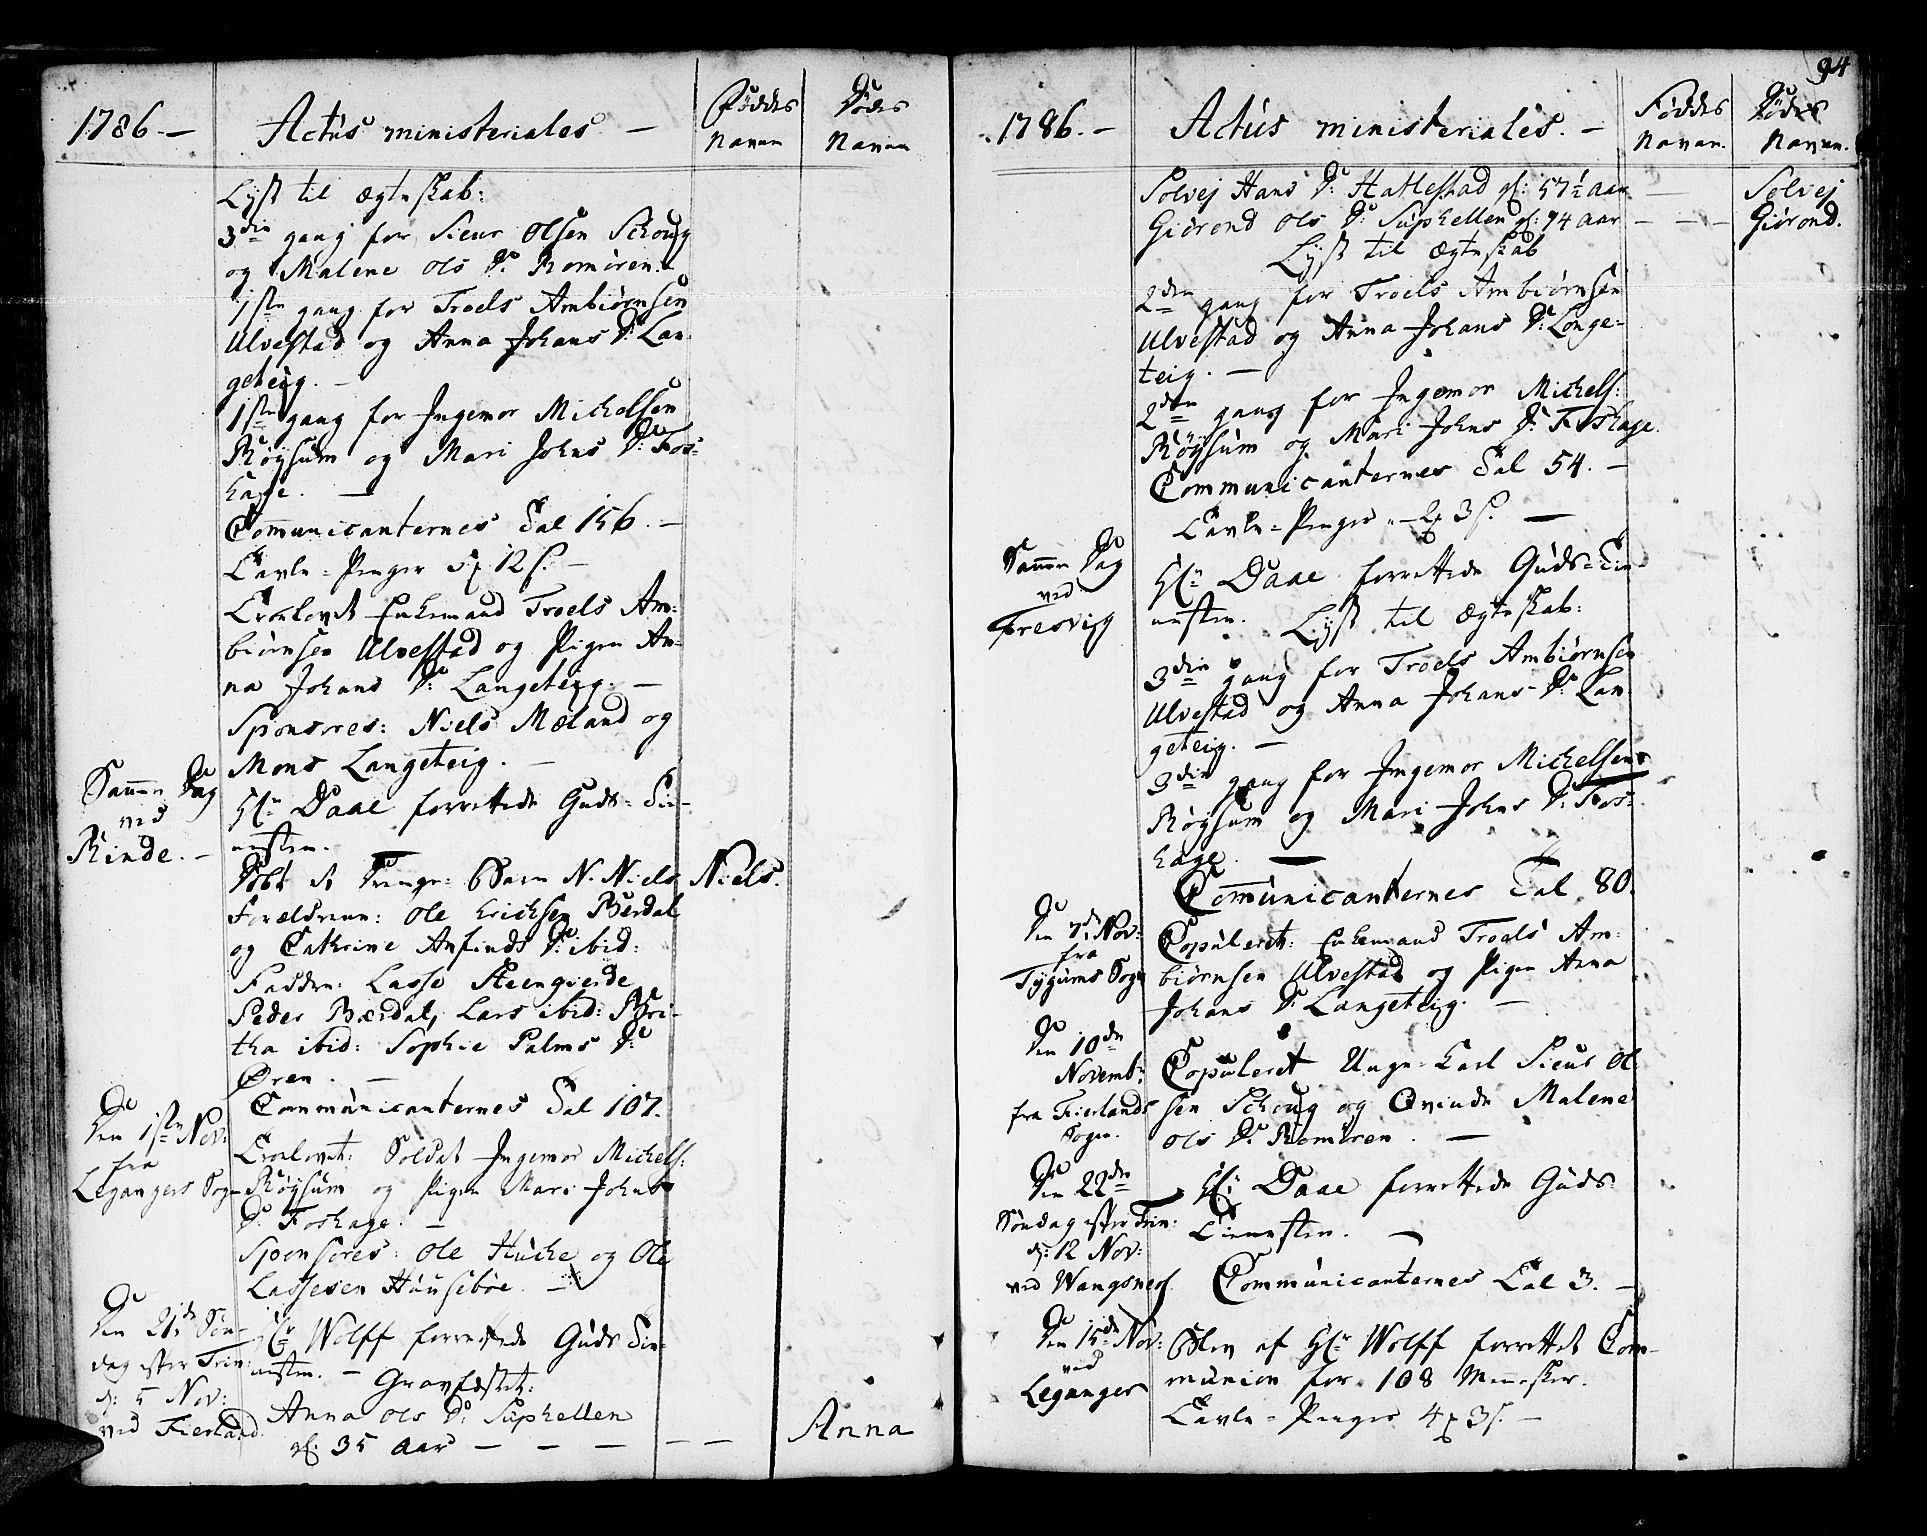 1786. — Actus ministeriales. — Føddes Navne Dødes Navne
Lyst til Ægteskab:
3die gang for Sieur Olsen Schoug
og Malene Ols D: Romøren. —
1ste gang for Troels Ambiørnsen
Ulvestad og Anna Johans D: Lan-
geteig. —
1ste gang for Ingemor Michelsen
Røysum og Mari Johns D: Fos-
hage. —
Communicanternes Tal 156. —
Tavle-Penger 5 12 s. —
Trolovet Enkemand Troels Am-
biørnsen Ulvestad og Pigen An-
na Johans D: Langeteig. —
Sponsores: Niels Mæland og
Mons Langeteig. —
Samme Dag
ved
Rinde. —
Hr Daae forrettede Guds-Tie-
nesten. —
Døbt et Drenge-Barn N. Niels Niels.
Forældrene: Ole Erichsen Berdal
og Cathrine Anfinds D: ibid:
Faddere: Lasse Steengierde
Peder Bærdal, Lars ibid: Bri-
tha ibid: Sophie Palms D:
Øren. —
Communicanternes Tal 107.
Den 1ste Nov:
fra
Legangers Sogn
Trolovet: Soldat Ingemor Michels:
Røysum og Pigen Mari Johns
D: Foshage. —
Sponsores: Ole Huche og Ole
Lassesen Housebøe. —
Den 21de Søn-
dag efter Trin:
d: 5 Nov:
ved Fierland.
Hr Wolff forrettede Guds Tie-
nesten. — Gravfæstet:
Anna Ols D: Suphellen
gl: 35 Aar — — — — — Anna
94
1786. — Actus ministeriales. — Føddes Navne. Dødes Navne.
Solvej Hans D: Hatlestad gl: 57½ Aar — Solvej
Giørond Ols D: Suphellen gl: 74 Aar — — — Giørond.
Lyst til Ægteskab
2den gang for Troels Ambiørnsen
Ulvestad og Anna Johans D: Lange-
teig. —
2den gang for Ingemor Michels:
Røysum og Mari Johns D: Foshage.
Communicanternes Tal 54. —
Tavle-Penger — 2 3 s. —
Samme Dag
ved
Fresvig
Hr Daae forrettede Guds-Tie-
nesten.
Lyst til Ægteskab:
3die gang for Troels Ambiørnsen
Ulvestad og Anna Johans D: Lan-
geteig. —
3die gang for Ingemor Michelsen
Røysum og Mari Johns D: Fos-
hage. —
Communicanternes Tal 80.
Den 7de Nov:
fra
Tygums Sogn
Copuleret: Enkemand Troels Am-
biørnsen Ulvestad og Pigen Anna
Johans D: Langeteig. —
Den 10de
Novembr
fra Fierlands
Sogn.
Copuleret Unge-Karl Sieur Ol-
sen Schoug og Qvinde Malene
Ols D: Romøren. —
Den 22de
Søndag efter Trin:
d: 12 Nov:
ved Wangsnes
Hr Daae forrettede Guds-
Tienesten. —
Communicanternes Tal 3. —
Den 15de Nov:
ved
Leganger
Blev af Hr Wolff forrettet Com-
munion for 108 Mennesker.
Tavle-Penger 4 3 s. —